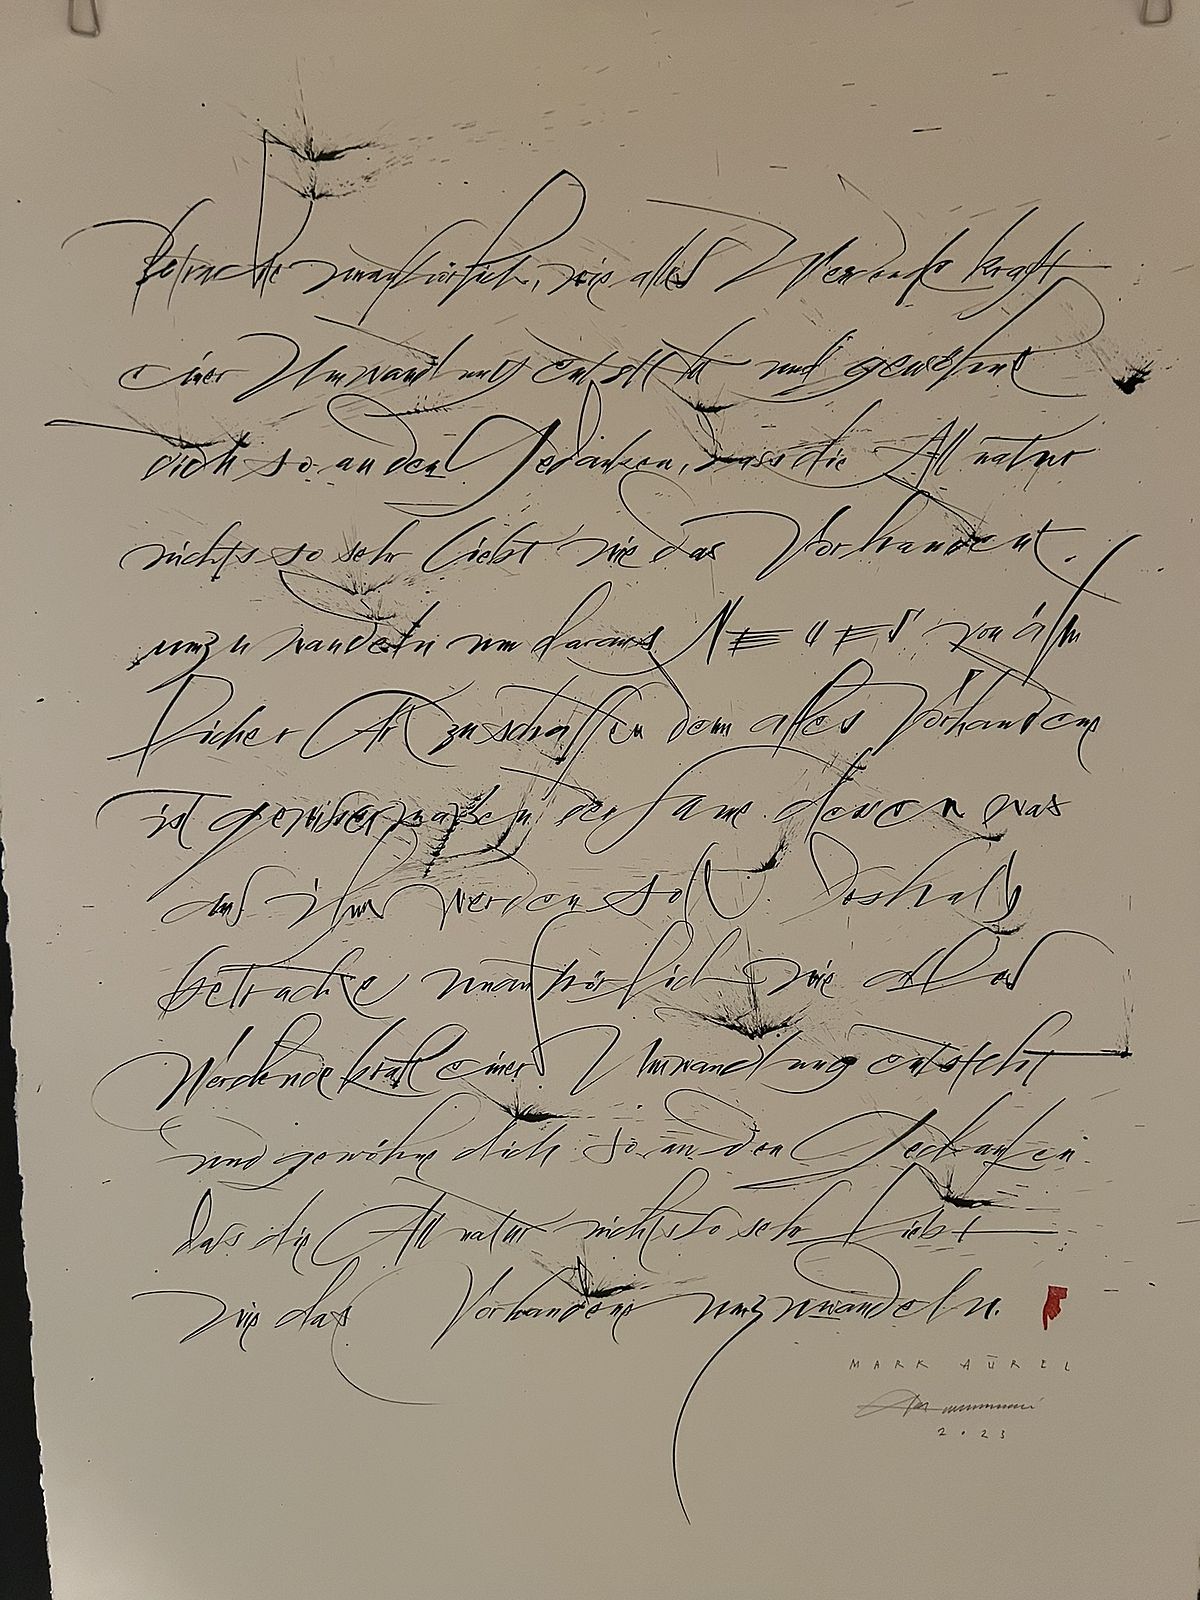 Betrachte unaufhörlich, wie alles Werdende kraft
einer Umwandlung entsteht und gewöhne
dich so an den Gedanken, dass die Allnatur
nichts so sehr liebt wie das Vorhandene
umzuwandeln um daraus NEUES von ähn
licher Art zu schaffen denn alles Vorhandene
ist gewissermaßen der Same dessen was
aus ihm werden soll. Deshalb
betrachte unaufhörlich wie alles
Werdende kraft einer Umwandlung entsteht
und gewöhne dich so an den Gedanken
das die Allnatur nichts so sehr liebt
wie das Vorhandene umzuwandeln.
MARK AUREL
2023